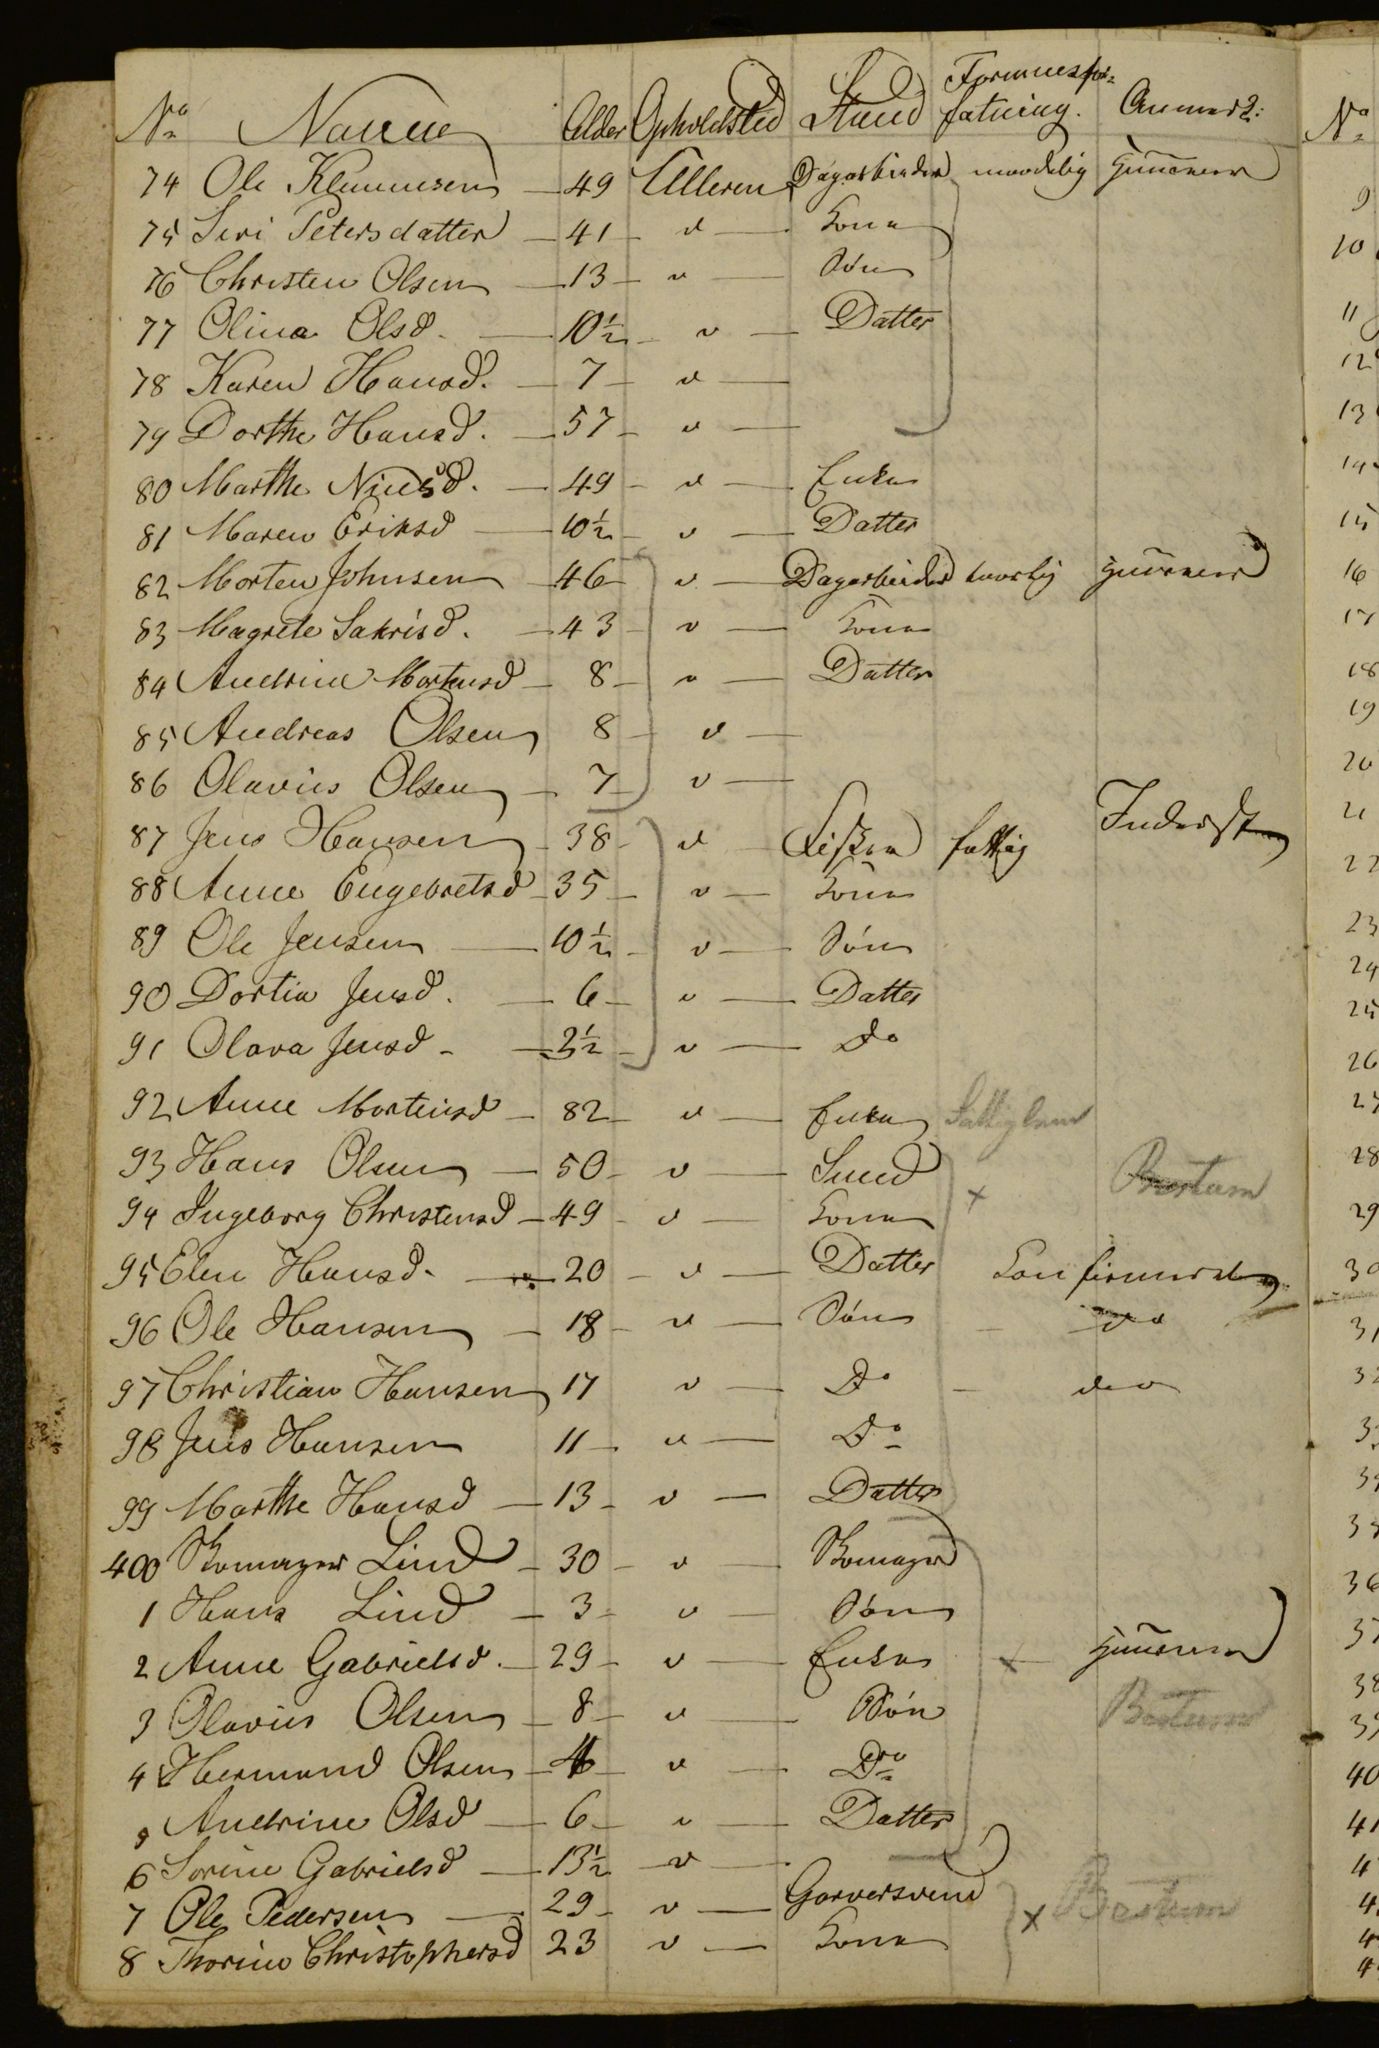 No Navne Alder Opholdsted Stand Formuesforfatning. Anmerk:
74 Ole Klemmesen — 49 Ulleren Dagarbeider maadelig
75 Siri Petersdatter — 41 — " — Kone
76 Christen Olsen — 13 — " — Søn
77 Olina Olsd. — 10½ — " — Datter
78 Karen Hansd. — 7 — " —
79 Dorthe Hansd. — 57 — " —
80 Marthe Nielsd. — 49 — " — Enke
81 Maren Eriksd — 10½ — " — Datter
82 Morten Johnsen — 46 — " — Dagarbeider
83 Magrete Sakrisd. — 43 — " — Kone
84 Andrine Mortensd — 8 — " — Datter
85 Andreas Olsen 8 — " —
86 Olavus Olsen — 7 — " —
87 Jens Hansen — 38 — " — Fisker fattig Inderst
88 Anne Engebretsd — 35 — " — Kone
89 Ole Jensen — 10½ — " — Søn
90 Dortia Jensd. — 6 — " — Datter
91 Olava Jensd — 2½ — " — Do
92 Anne Mortensd — 82 — " — Enke Fattiglem
93 Hans Olsen — 50 — " — Smed
94 Ingeborg Christensd — 49 — " — Kone ×
95 Elen Hansd. — 20 — " — Datter Confirmerede
96 Ole Hansen — 18 — " — Søn — do
97 Christian Hansen 17 " — Do — do
98 Jens Hansen 11 — " — Do
99 Marthe Hansd — 13 — " — Datter
400 Skomager Lind — 30 — " — Skomager
1 Hans Lind — 3 — " — Søn
2 Anne Gabrielsd. — 29 — " — Enke ×
3 Olavus Olsen — 8 — " — Søn
4 Hermand Olsen — 4 — " — Do
5 Andrine Olsd — 6 — " — Datter
6 Sorine Gabrielsd — 13½ — " —
7 Ole Pedersen — 29 — " — Garversvend ×
8 Thorine Christophersd 23 " — Kone
No
9
10
11
12
13
14
15
16
17
18
19
20
21
22
23
24
25
26
27
28
29
30
31
32
36
37
38
39
40
41